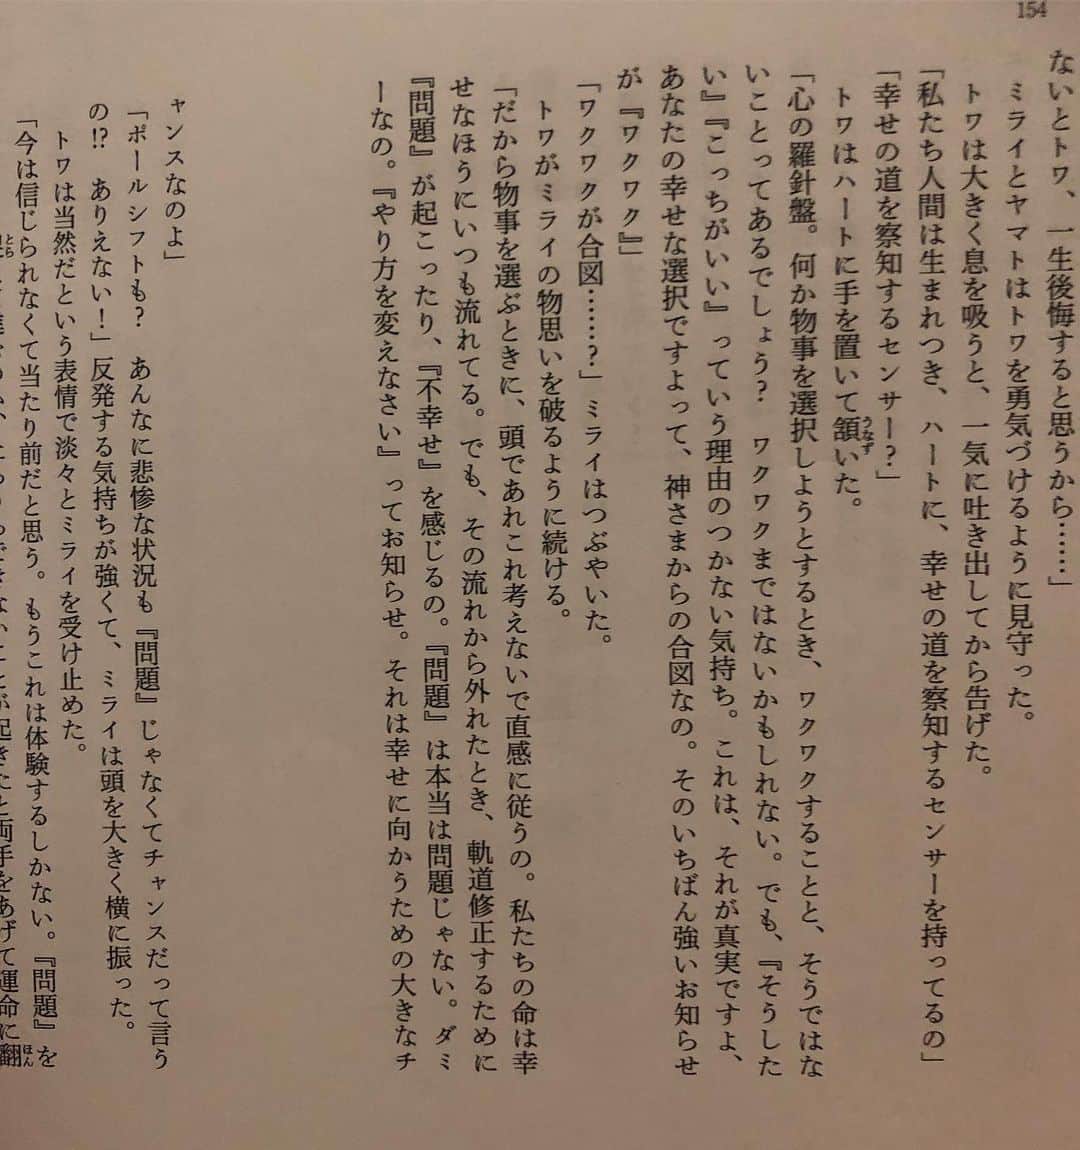 154
ないとトワ、一生後悔すると思うから……」
ミライとヤマトはトワを勇気づけるように見守った。
トワは大きく息を吸うと、一気に吐き出してから告げた。
「私たち人間は生まれつき、ハートに、幸せの道を察知するセンサーを持ってるの」
「幸せの道を察知するセンサー？」
トワはハートに手を置いて頷うなずいた。
「心の羅針盤。何か物事を選択しようとするとき、ワクワクすることと、そうではな
いことってあるでしょう？　ワクワクまではないかもしれない。でも、『そうした
い』『こっちがいい』っていう理由のつかない気持ち。これは、それが真実ですよ、
あなたの幸せな選択ですよって、神さまからの合図なの。そのいちばん強いお知らせ
が『ワクワク』」
「ワクワクが合図……？」ミライはつぶやいた。
トワがミライの物思いを破るように続ける。
「だから物事を選ぶときに、頭であれこれ考えないで直感に従うの。私たちの命は幸
せなほうにいつも流れてる。でも、その流れから外れたとき、軌道修正するために
『問題』が起こったり、『不幸せ』を感じるの。『問題』は本当は問題じゃない。ダミ
ーなの。『やり方を変えなさい』ってお知らせ。それは幸せに向かうための大きなチ
ャンスなのよ」
「ポールシフトも？　あんなに悲惨な状況も『問題』じゃなくてチャンスだって言う
の!?　ありえない！」反発する気持ちが強くて、ミライは頭を大きく横に振った。
トワは当然だという表情で淡々とミライを受け止めた。
「今は信じられなくて当たり前だと思う。もうこれは体験するしかない。『問題』を
ことが起きたと両手をあげて運命に翻ほん